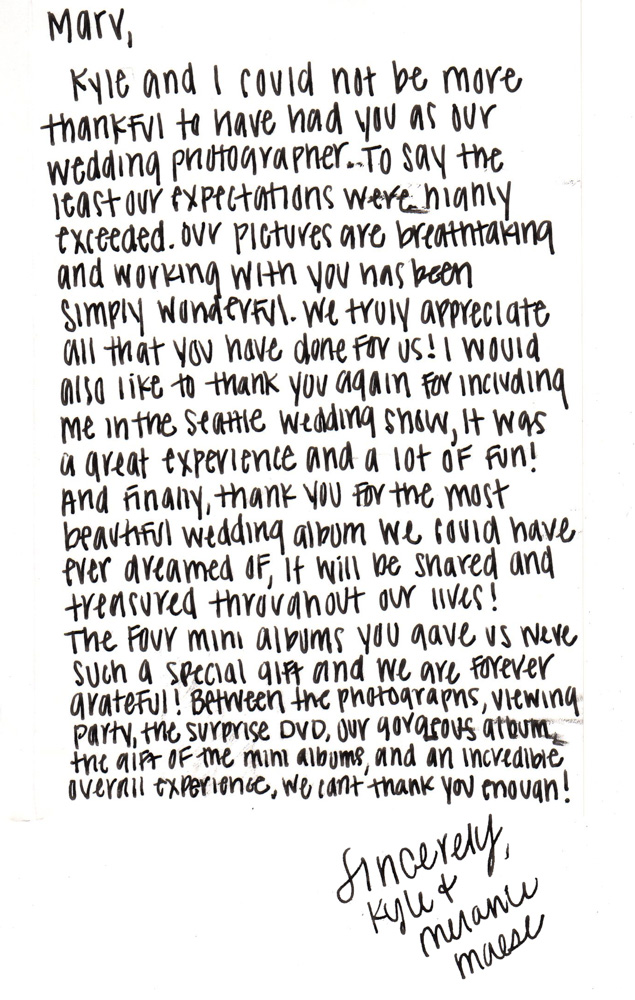 Marv,
Kyle and I could not be more
thankful to have had you as our
wedding photographer...To say the
least our expectations were highly
exceeded. Our pictures are breathtaking
and working with you has been
simply wonderful. We truly appreciate
all that you have done for us! I would
also like to thank you again for including
me in the Seattle wedding show, it was
a great experience and a lot of fun!
And finally, thank you for the most
beautiful wedding album we could have
ever dreamed of, it will be shared and
treasured throughout our lives!
The four mini albums you gave us were
such a special gift and we are forever
grateful! Between the photographs, viewing
party, the surprise DVD, our gorgeous album,
the gift of the mini albums, and an incredible
overall experience, we cant thank you enough!
Sincerely,
Kyle &
Melanie
Maese